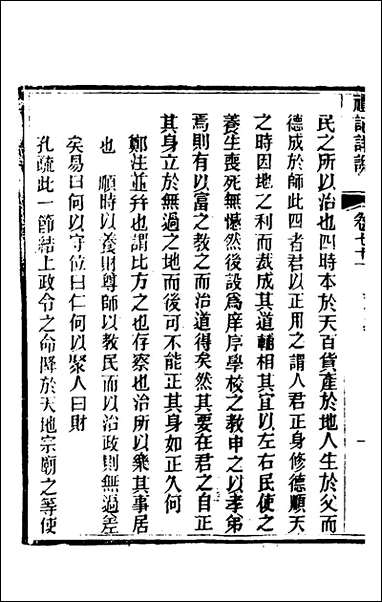 禮記詳說
卷七十一
民之所以治也四時本於天百貨產於地人生於父而
德成於師此四者君以正用之謂人君正身修德順天
之時因地之利而裁成其道輔相其宜以左右民使之
養生喪死無憾然後設為庠序學校之教申之以孝弟
焉則有以富之教之而治道得矣然其要在君之自正
其身立於無過之地而後可不能正其身如正人何
鄭注並幷也謂比方之也存察也治所以樂其事居
也 順時以養財尊師以教民而以治政則無過差
矣易曰何以守位曰仁何以聚人曰財
孔疏此一節結上政令之命降於天地宗廟之等使